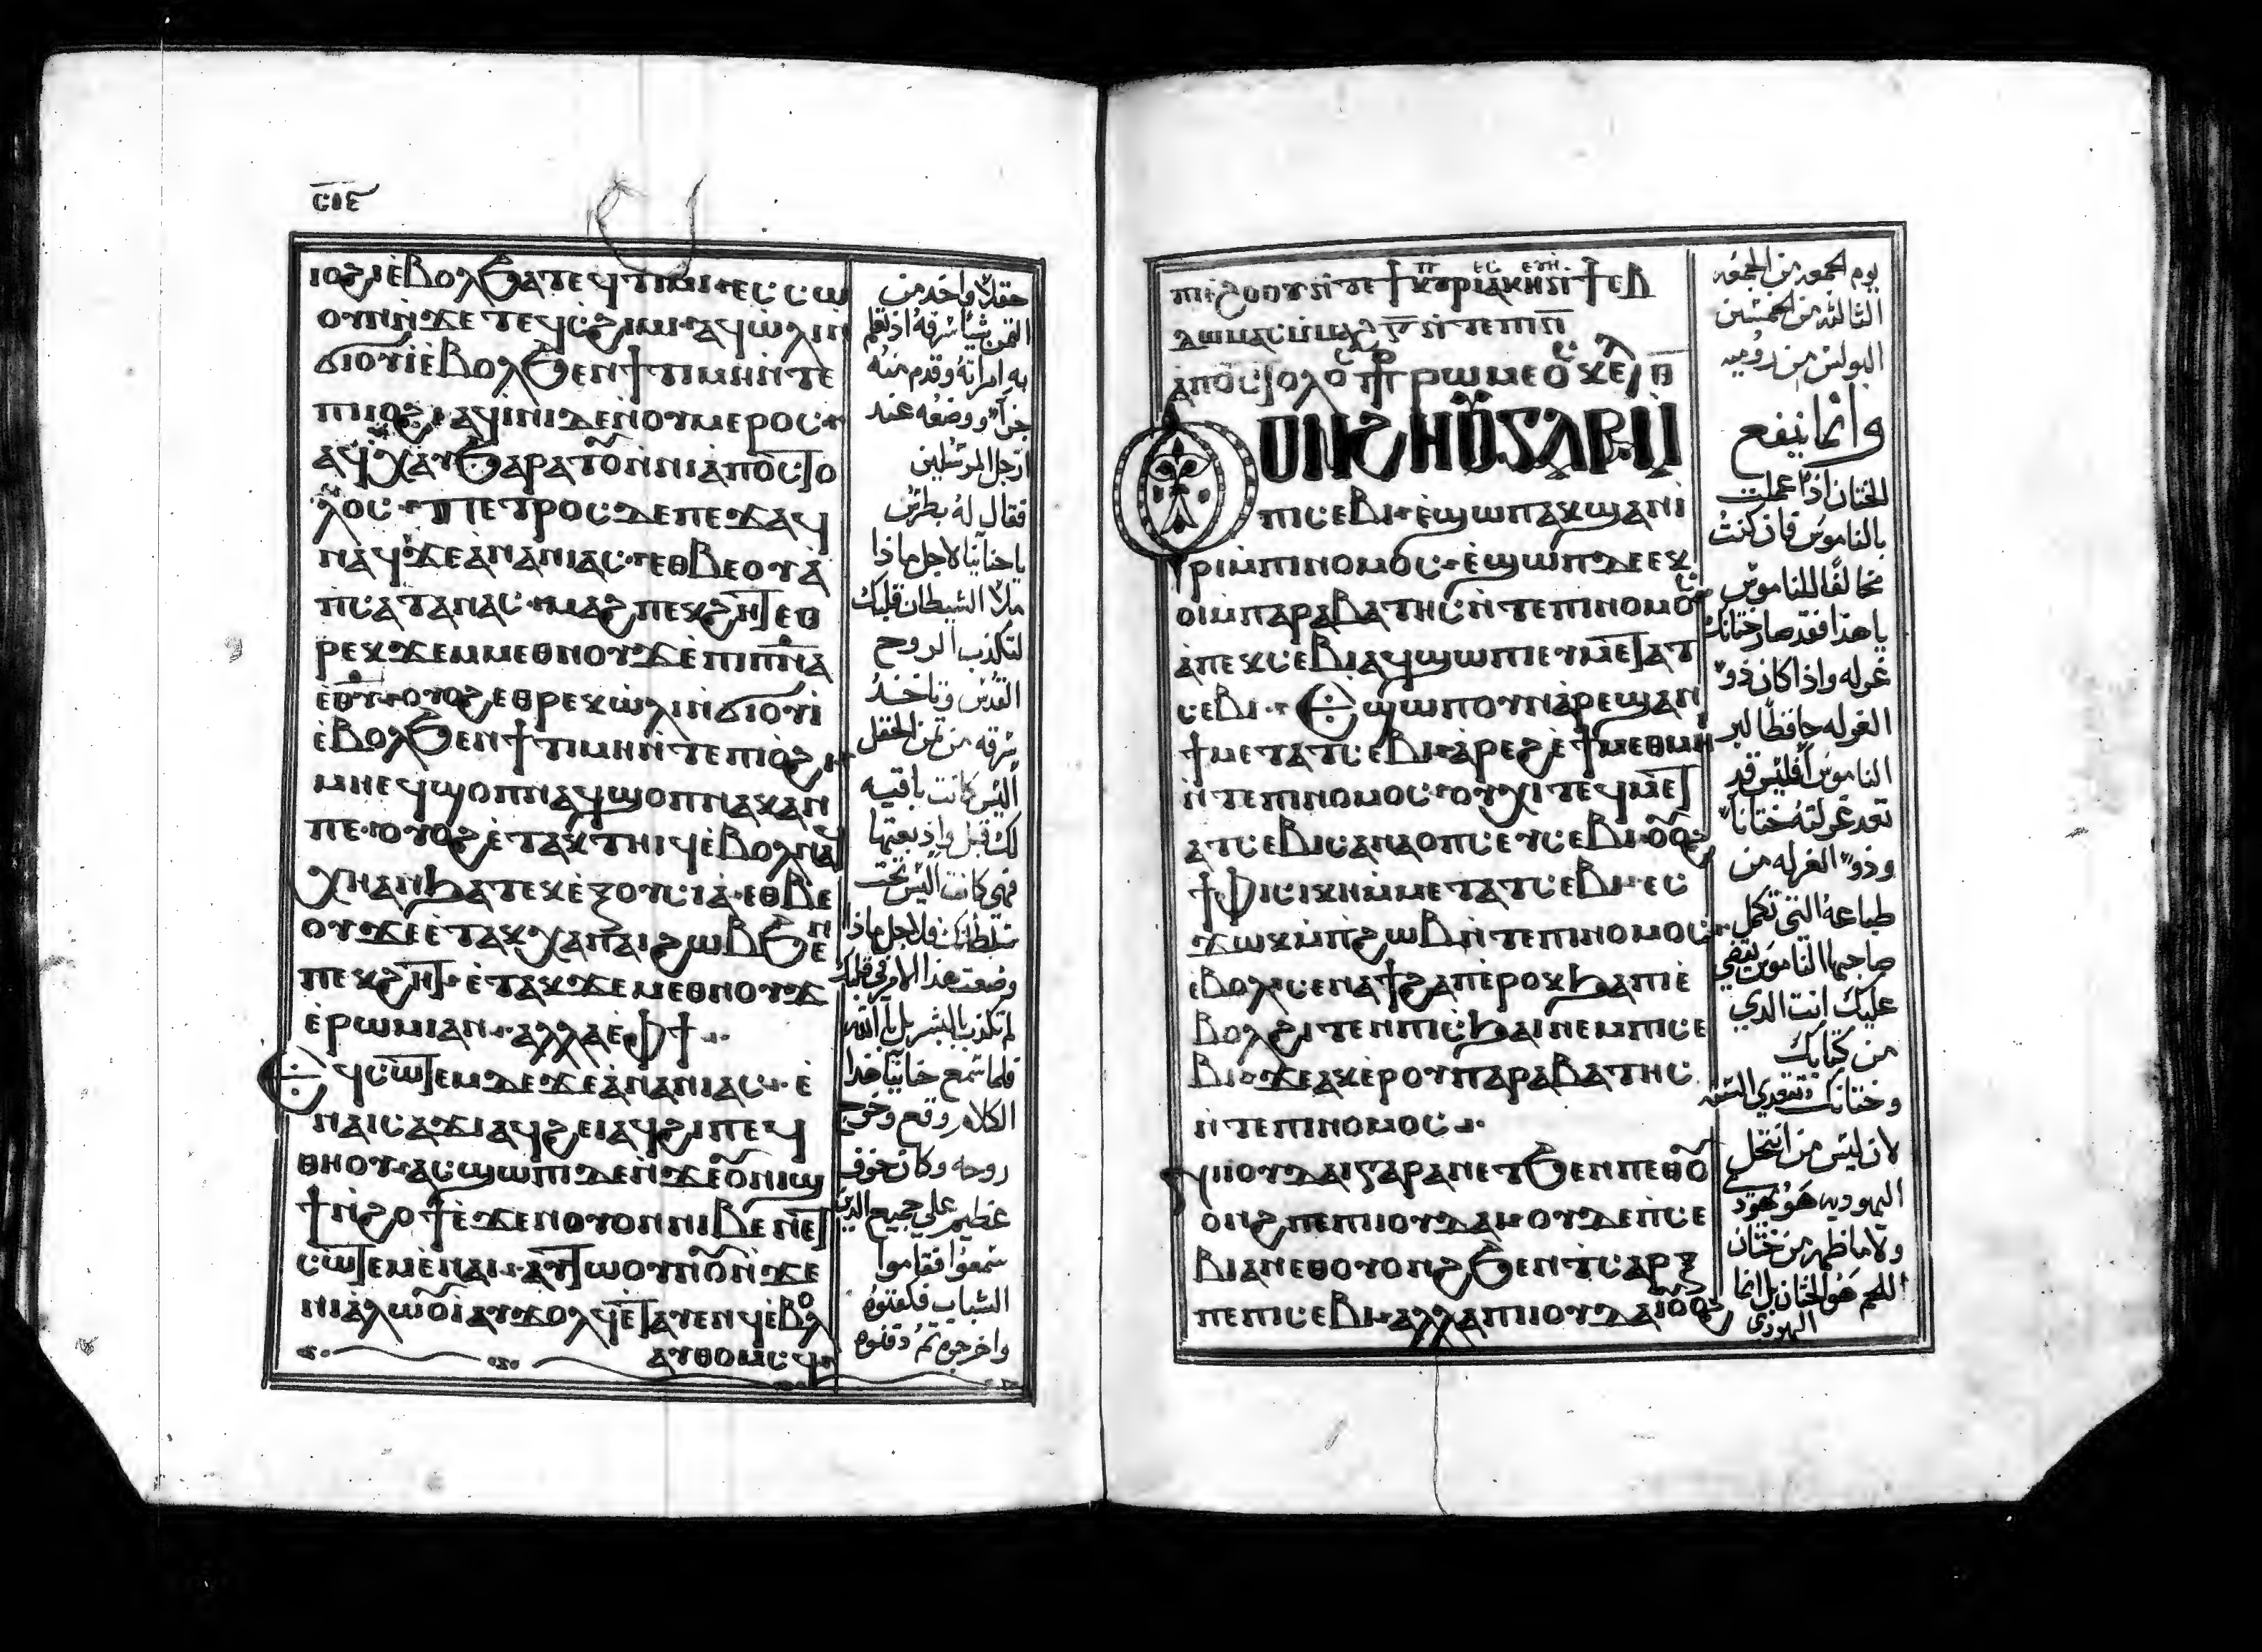 ⲥⲓⲉ
ⲓⲟϩⲓ ⲉ̀ⲃⲟⲗ ϧⲁⲧⲉϥⲧⲓⲙⲏ ⲉⲥⲥⲱ
ⲟⲩⲛ ⲛ̀ϫⲉ ⲧⲉϥⲥϩⲓⲙⲓ ⲁϥⲱ̀ⲗⲓ ⲛ̀
ϭⲓⲟⲩⲓ̀ ⲉ̀ⲃⲟⲗ ϧⲉⲛ ϯⲧⲓⲙⲏ ⲛ̀ⲧⲉ
ⲡⲓⲓⲟϩⲓ ⲁϥⲓⲛⲓ ⲇⲉ ⲛ̀ⲟⲩⲙⲉⲣⲟⲥ
ⲁϥⲭⲁⲩ ϧⲁⲣⲁⲧⲟⲩ ⲛ̀ⲛⲓⲁ̀ⲡⲟⲥⲧⲟ
ⲗⲟⲥ ⲡⲉⲧⲣⲟⲥ ⲇⲉ ⲡⲉϫⲁϥ
ⲛⲁϥ ϫⲉ ⲁ̀ⲛⲁⲛⲓⲁⲥ ⲉⲑⲃⲉⲟⲩ ⲁ̀
ⲡⲥⲁⲧⲁⲛⲁⲥ ⲙⲁϩ ⲡⲉⲕϩⲏⲧ ⲉⲑ
ⲣⲉⲕϫⲉⲙⲙⲉⲑⲛⲟⲩϫ ⲉ̀ⲡⲓⲡ̅ⲛ̅ⲁ̅
ⲉ̅ⲑ̅ⲩ̅ ⲟⲩⲟϩ ⲉⲑⲣⲉⲕⲱ̀ⲗⲓ ⲛ̀ϭⲓⲟⲩⲓ̀
ⲉ̀ⲃⲟⲗ ϧⲉⲛ ϯⲧⲓⲙⲏ ⲛ̀ⲧⲉ ⲡⲓⲟ̀ϩⲓ
ⲙⲏ ⲉϥϣⲟⲡ ⲛⲁϥϣⲟⲡ ⲛⲁⲕ ⲁⲛ
ⲡⲉ ⲟⲩⲟϩ ⲉ̀ⲧⲁⲕⲧⲏⲓϥ ⲉ̀ⲃⲟⲗ ⲛⲁϥ
ⲭⲏ ⲁⲛ ϧⲁ ⲧⲉⲕⲉ̀ⲝⲟⲩⲥⲓⲁ̀ ⲉⲑⲃⲉ
ⲟⲩ ϫⲉ ⲉ̀ⲧⲁⲕⲭⲁ ⲡⲁⲓϩⲱⲃ ϧⲉⲛ
ⲡⲉⲕϩⲏⲧ ⲉ̀ⲧⲁⲕϫⲉⲙⲉⲑⲛⲟⲩϫ
ⲉ̀ⲣⲱⲙⲓ ⲁⲛ ⲁⲗⲗⲁ ⲉ̀ⲫϯ
ⲉϥⲥⲱⲧⲉⲙ ⲇⲉ ϫⲉ ⲁ̀ⲛⲁⲛⲓⲁⲥ ⲉ̀
ⲛⲁⲓⲥⲁϫⲓ ⲁϥϩⲉⲓ ⲁϥϩⲓ ⲡⲉϥ
ⲑⲏⲟⲩ ⲁⲥϣⲱⲡⲓ ⲇⲉ ⲛ̀ϫⲉ ⲟⲩⲛⲓϣ
ϯ ⲛ̀ϩⲟϯ ⲉ̀ϫⲉⲛ ⲟⲩⲟⲛ ⲛⲓⲃⲉⲛ ⲉⲧ
ⲥⲱⲧⲉⲙ ⲉ̀ⲛⲁⲓ ⲁⲩⲧⲱⲟⲩⲛⲟⲩ ⲛ̀ϫⲉ
ⲛⲓⲁ̀ⲗⲱⲟⲩⲓ̀ ⲁⲩⲕⲟⲗϥ ⲉⲧⲁⲩⲉⲛϥ ⲉ̀ⲃⲟⲗ
ⲁⲩⲑⲟⲙⲥϥ
حقلا واخد من
الثمن شيا سرقه اذ تعلم
به امراته وقدم منه
جزا ووضعه عند
ارجل المرسلين
فقال له بطرس
يا حنانيا لاجل ماذا
ملا الشيطان قلبك
لتكذب الروح
القدس وتاخد
سرقه من ثمن الحقل
اليس كانت باقيه
لك قبل واذ بعتها
فهى كانت اليس تحت
سلطانك فلاجل ماذا
وضعت هذا الامر فى قلبك
لم تكذب بالبشر بل بالله
فلما سمع حنانيا هذا
الكلام وقع وخرج
روحه وكان خوف
عظيم على جميع الدين
سمعوا فقاموا
الشباب فلفوه
واخرجوه ثم دفنوه
ⲡⲓⲉ̀ϩⲟⲟⲩ ⲛ̀ⲧⲉ ϯⲕⲩⲣⲓⲁⲕⲏ ⲛ̀ϯⲉⲃ
ⲇⲱⲙⲁⲥ ⲙ̀ⲙⲁϩ ⲅ̅ ⲛ̀ⲧⲉ ⲡⲓⲛ̅
ⲁ̀ⲡⲟⲥⲧⲟⲗⲟⲥ ⲣⲱⲙⲉⲟⲥ ⲕⲉⲫ
ⲟⲩⲛ ϩⲏⲟⲩ ⲅⲁⲣ ⲙ̀
ⲡⲓⲥⲉⲃⲓ ⲉ̀ϣⲱⲡ ⲁⲕϣⲁⲛⲓ
ⲣⲓ ⲙ̀ⲡⲓⲛⲟⲙⲟⲥ ⲉ̀ϣⲱⲡ ⲇⲉ ⲉⲕ
ⲟⲓ ⲙ̀ⲡⲁⲣⲁⲃⲁⲧⲏⲥ ⲛ̀ⲧⲉ ⲡⲓⲛⲟⲙⲟⲥ
ⲁ̀ ⲡⲉⲕⲥⲉⲃⲓ ⲁϥϣⲱⲡⲓ ⲉⲩⲙⲉⲧⲁⲧ
ⲥⲉⲃⲓ ⲉϣⲱⲡ ⲟⲩⲛ ⲁ̀ⲣⲉϣⲁⲛ
ϯⲙⲉⲧⲁⲧⲥⲉⲃⲓ ⲁ̀ⲣⲉϩ ⲉ̀ϯⲙⲉⲑⲙⲏⲓ
ⲛ̀ⲧⲉ ⲡⲓⲛⲟⲙⲟⲥ ⲟⲩⲭⲓ ⲧⲉϥⲙⲉⲧ
ⲁⲧⲥⲉⲃⲓ ⲥⲉⲛⲁⲟⲡⲥ ⲉⲩⲥⲉⲃⲓ ⲟⲩⲟϩ
ϯⲫⲩⲥⲓⲕⲏ ⲙ̀ⲙⲉⲧⲁⲧⲥⲉⲃⲓ ⲉⲥ
ϫⲱⲕ ⲙ̀ⲡϩⲱⲃ ⲛ̀ⲧⲉ ⲡⲓⲛⲟⲙⲟⲥ
ⲉ̀ⲃⲟⲗ ⲥⲉⲛⲁϯϩⲁⲡ ⲉ̀ⲣⲟⲕ ϧⲁ ⲡⲓⲉ̀
ⲃⲟⲗ ϩⲓⲧⲉⲛ ⲡⲓⲥϧⲁⲓ ⲛⲉⲙ ⲡⲓⲥⲉ
ⲃⲓ ϫⲉ ⲁⲕⲉⲣⲟⲩⲡⲁⲣⲁⲃⲁⲧⲏⲥ
ⲛ̀ⲧⲉ ⲡⲓⲛⲟⲙⲟⲥ
ⲡⲓⲓⲟⲩⲇⲁⲓ ⲅⲁⲣ ⲁⲛ ⲉⲧϧⲉⲛ ⲡⲉⲑⲟⲩ
ⲟⲛϩ ⲡⲉ ⲡⲓⲓⲟⲩⲇⲁⲓ ⲟⲩⲇⲉ ⲡⲥⲉ
ⲃⲓ ⲁⲛ ⲉⲑⲟⲩⲟⲛϩ ϧⲉⲛ ⲧⲥⲁⲣⲝ
ⲡⲉ ⲡⲓⲥⲉⲃⲓ ⲁⲗⲗⲁ ⲡⲓⲓⲟⲩⲇⲁⲓ
يوم الجمعه من الجمعه
الثالثه من الخمسين
البولس من روميه
وانما ينفع
الختان اذا عملت
بالناموس فان كنت
مخالفا للناموس
يا هذا فقد صار ختانك
غرله واذا كان ذو
الغرله حافظا لبر
الناموس افليس قد
تعد غرلته ختانا
وذو الغرله من
طباعه التى تكمل
صاحبها الناموس يقضى
عليك انت الدي
من كتابك
وختانك تتعدى السنه
لان ليس من انتحل
اليهوديه هو يهود
ولا ما ظهر من ختان
اللحم هو الختان بل انما
اليهودى